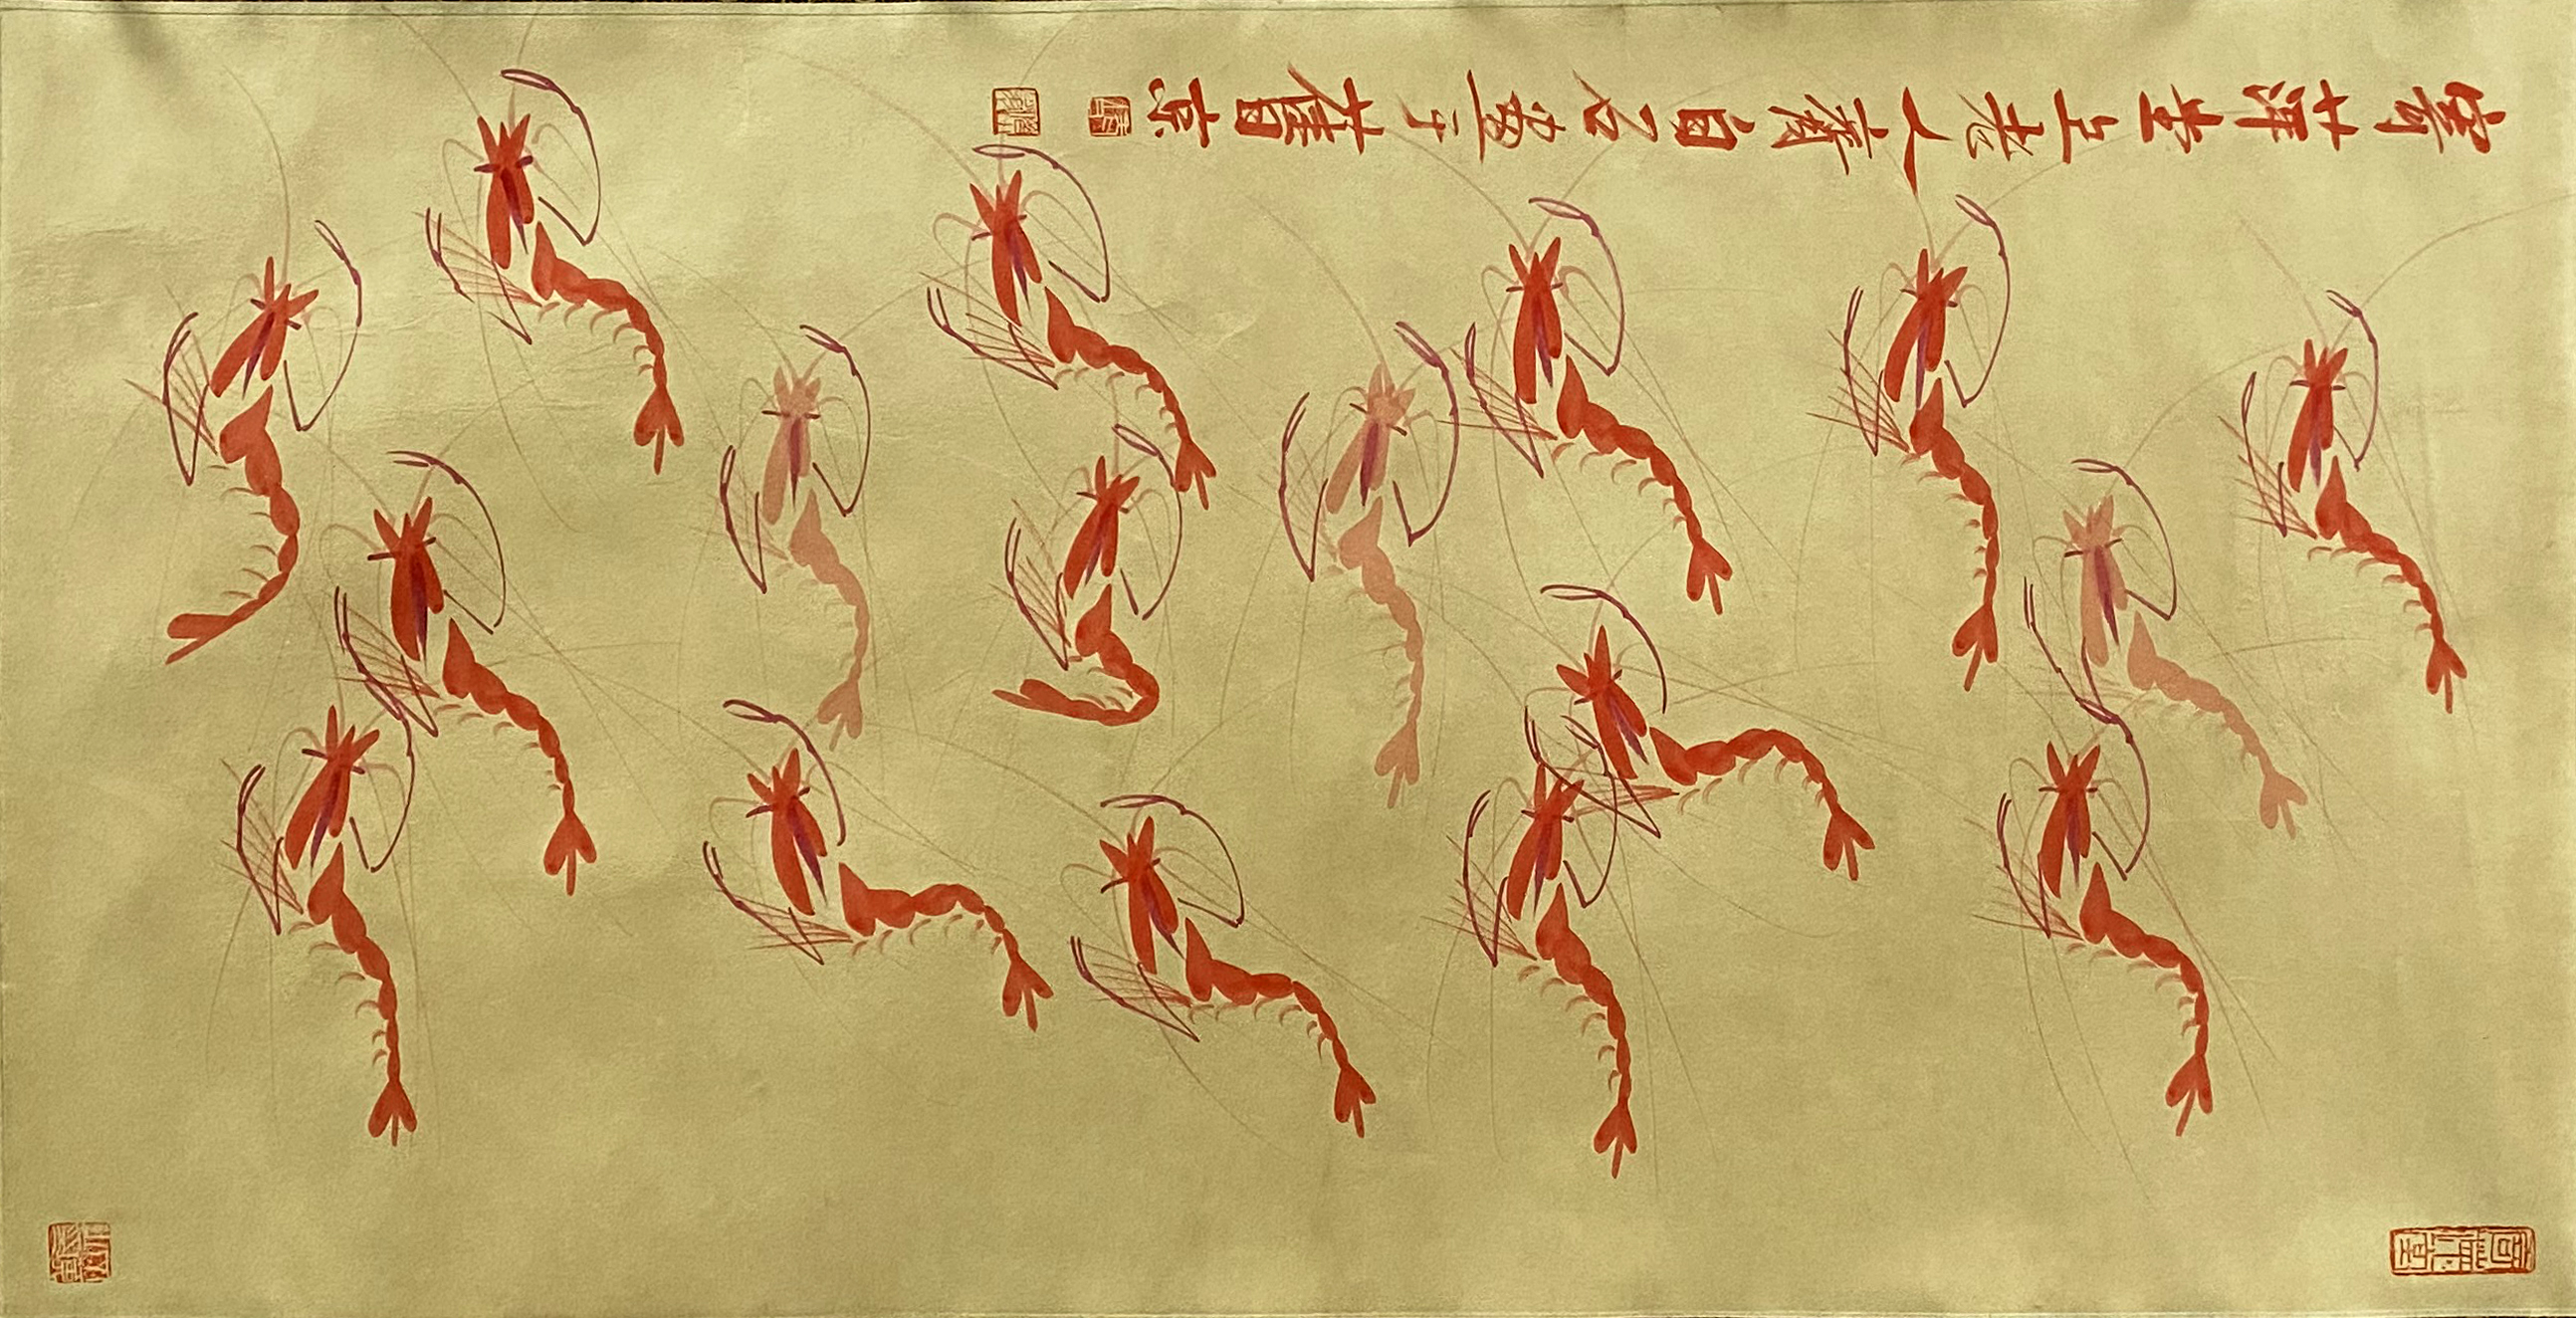 寄萍堂上老人齊白石畫于舊京